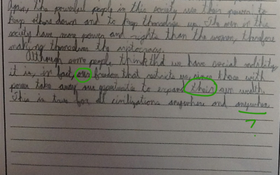 Again, the powerful people in the society use their powers to
keep others down and to keep themselves up. The men in the
society have more power and rights than the women, therefore
making themselves the aristocracy.
Although some people think that we have social mobility
it is, in fact, our that those with
power take away our to expand their own wealth.
This is true for all civilizations anywhere and anywhen.
?